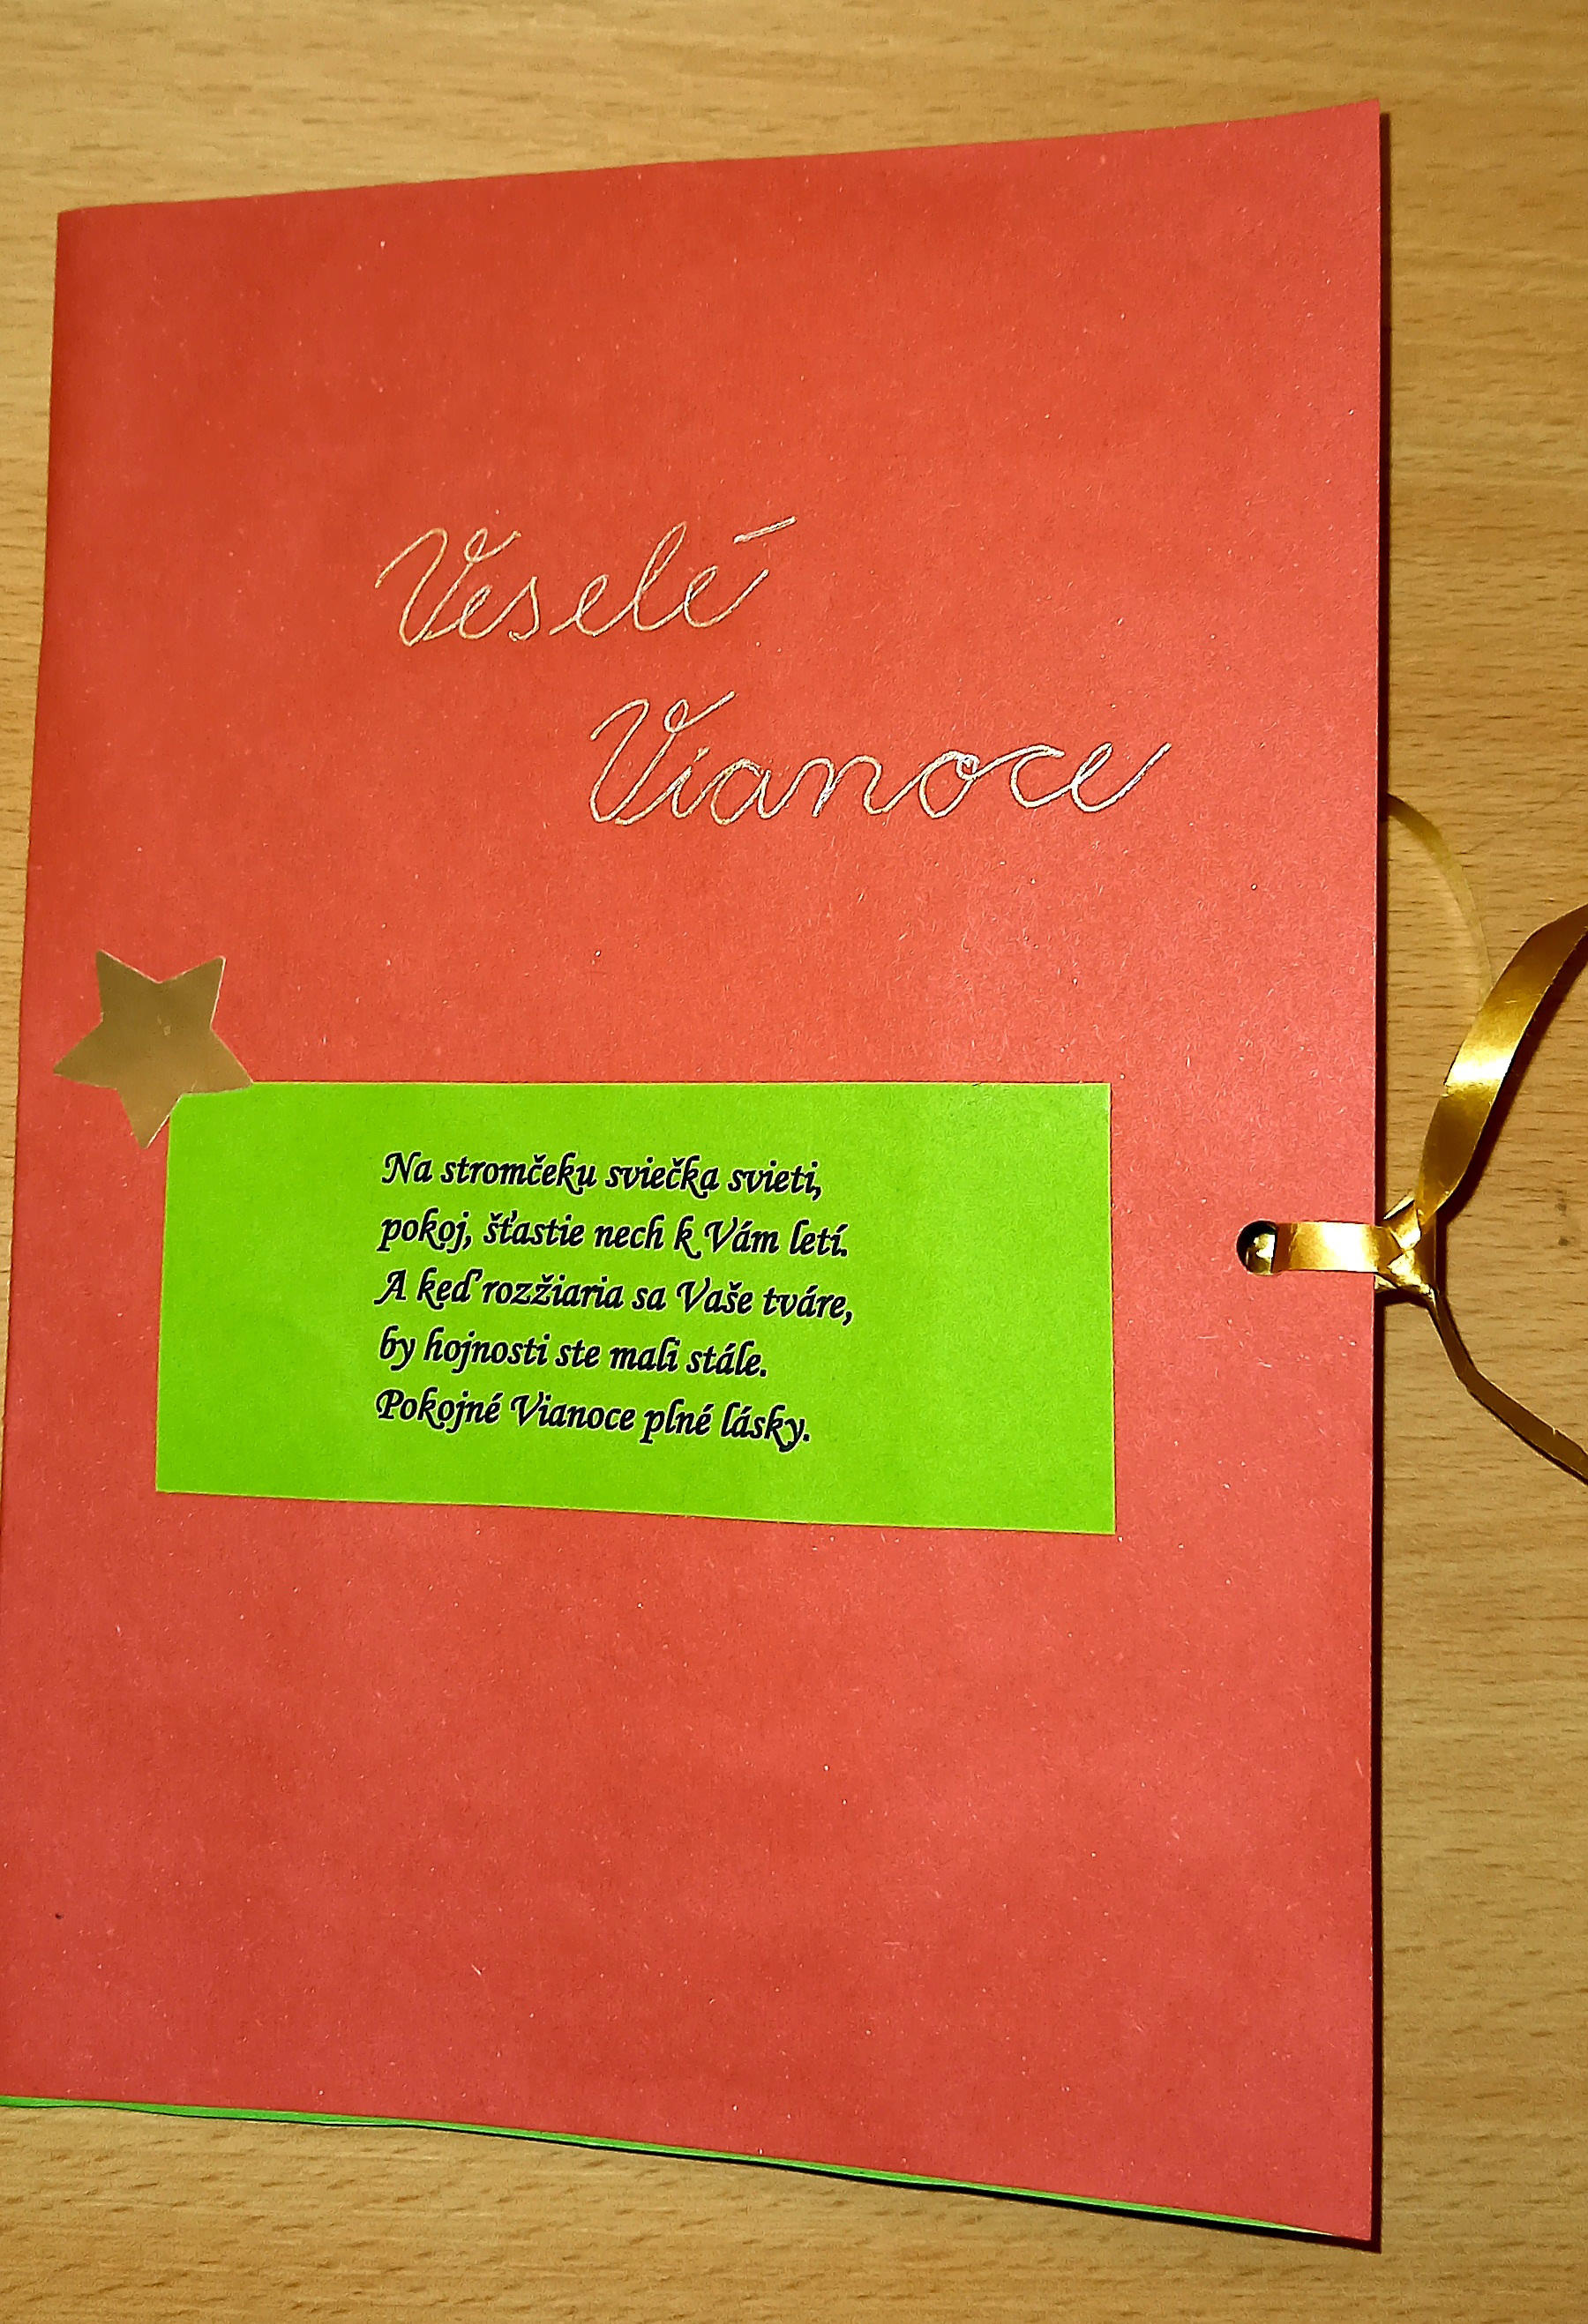 Veselé
Vianoce
Na stromčeku sviečka svieti,
pokoj, šťastie nech k Vám letí.
A keď rozžiaria sa Vaše tváre,
by hojnosti ste mali stále.
Pokojné Vianoce plné lásky.